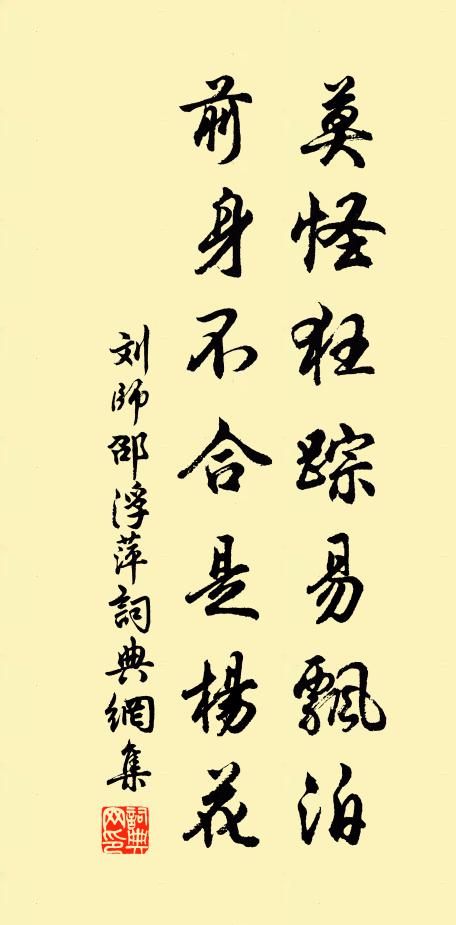 莫怪狂踪易飄泊
前身不合是楊花
刘師邵浮萍詞典網集
詞典网印